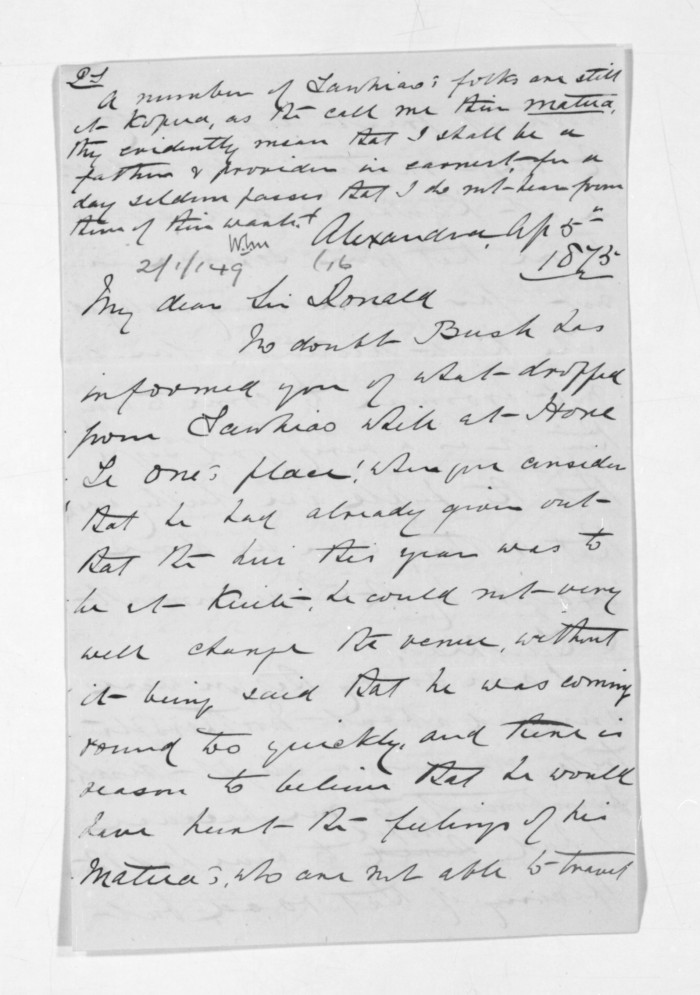 PS
A number of Tawhiao's folks are still
at Kopua, as the call me their matua,
they evidently mean that I shall be a
father & provider in earnest, for a
day seldom passes that I do not hear from
them of their wants. +
Wm
Alexandra, Ap 5th
2/1/149 16
1875
My dear Sir Donald
No doubt Bush has
informed you of what dropped
from Tawhiao while at Hone
Te One's place! When you consider
that he had already given out
that the hui this year was to
be at Kuiti, he could not very
well change the venue, without
it being said that he was coming
round too quickly, and there is
reason to believe that he would
have hurt the feelings of his
Matua's, who are not able to travel